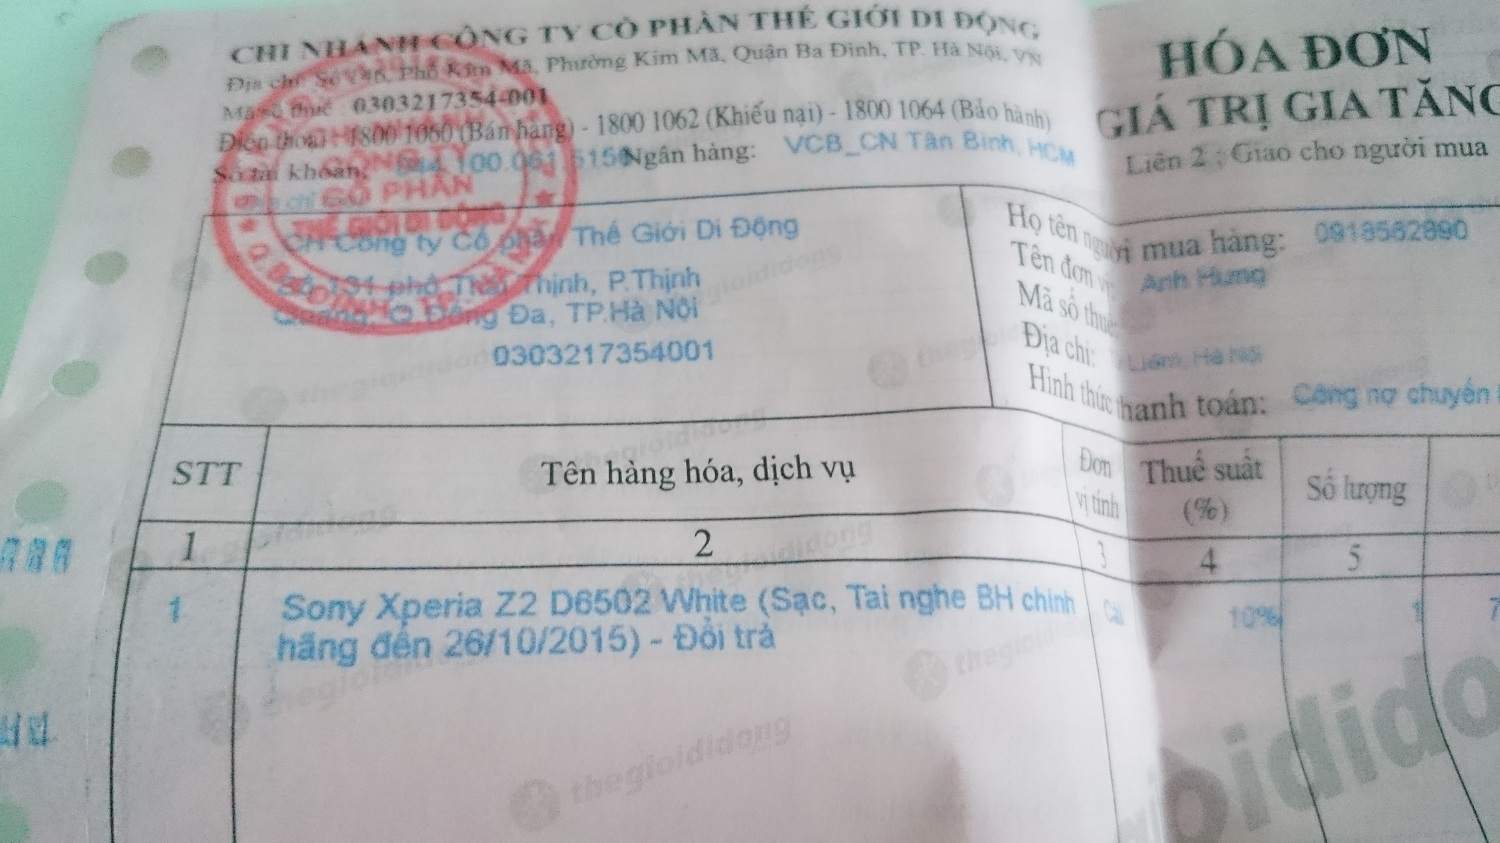 CHI NHÁNH CÔNG TY CỔ PHẦN THẾ GIỚI DI ĐỘNG
Địa chỉ: Phố Kim Mã, Phường Kim Mã, Quận Ba Đình, TP. Hà Nội, VN
Mã số thuế : 0303217354-001
Điện thoại : 1800 1060 (Bán hàng) - 1800 1062 (Khiếu nại) - 1800 1064 (Bảo hành)
Số tài khoản: 100.061 Ngân hàng: VCB_CN Tân Bình, HCM
HÓA ĐƠN
GIÁ TRỊ GIA TĂNG
Liên 2 : Giao cho người mua
CÔNG TY
CỔ PHẦN
THẾ GIỚI DI ĐỘNG
CH Công ty Cổ phần Thế Giới Di Động
Số 131 phố Thái Thịnh, P.Thịnh
Quang, Q Đống Đa, TP.Hà Nội
0303217354001
Họ tên người mua hàng: 0918562890
Tên đơn vị: Anh Hưng
Mã số thuế
Địa chỉ: Liêm, Hà Nội
Hình thức thanh toán: Công nợ chuyển
STT Tên hàng hóa, dịch vụ Đơn vị tính Thuế suất (%) Số lượng
1 2 3 4 5
1 Sony Xperia Z2 D6502 White (Sạc, Tai nghe BH chính Cái 10% 1 7
hãng đến 26/10/2015) - Đổi trả
thegioididong